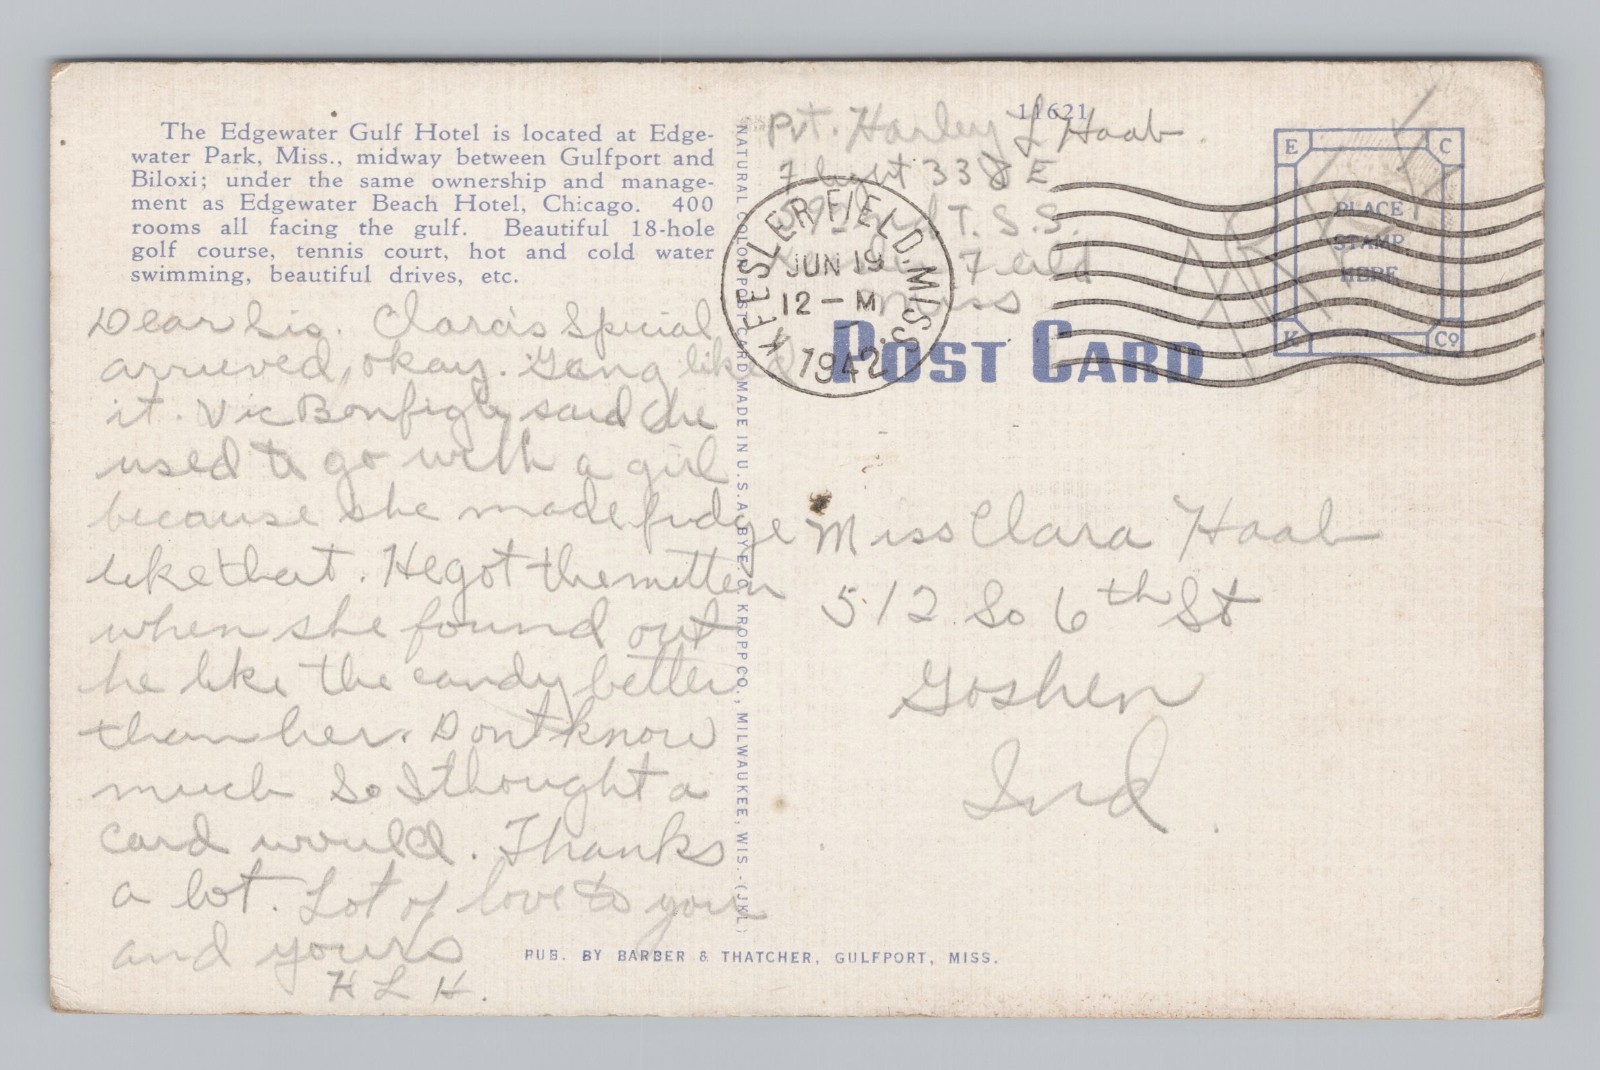 The Edgewater Gulf Hotel is located at Edge-
water Park, Miss., midway between Gulfport and
Biloxi; under the same ownership and manage-
ment as Edgewater Beach Hotel, Chicago. 400
rooms all facing the gulf. Beautiful 18-hole
golf course, tennis court, hot and cold water
swimming, beautiful drives, etc.
Dear Sis. Clara's Special
arrieved, okay. Gang liked
it. Vic Bonfigly said he
used to go with a girl
because she made fudge
like that. He got the mitten
when she found out
he like the candy better
than her. Don't know
much So I thought a
card would. Thanks
a lot. Lot of love to you
and yours
H L H.
NATURAL COLOR POST CARD MADE IN U. S. A. BY E. C. KROPP CO., MILWAUKEE, WIS.-(JKL)
11621
Pvt. Harley L Haab.
Flight 338 E
T. S. S.
Field
Miss
KEESLER FIELD. MISS.
JUN 19
12 - M
1942
POST CARD
E C
PLACE
STAMP
HERE
K Co
Miss Clara Haab
512 So 6th St
Goshen
Ind.
PUB. BY BARBER & THATCHER, GULFPORT, MISS.